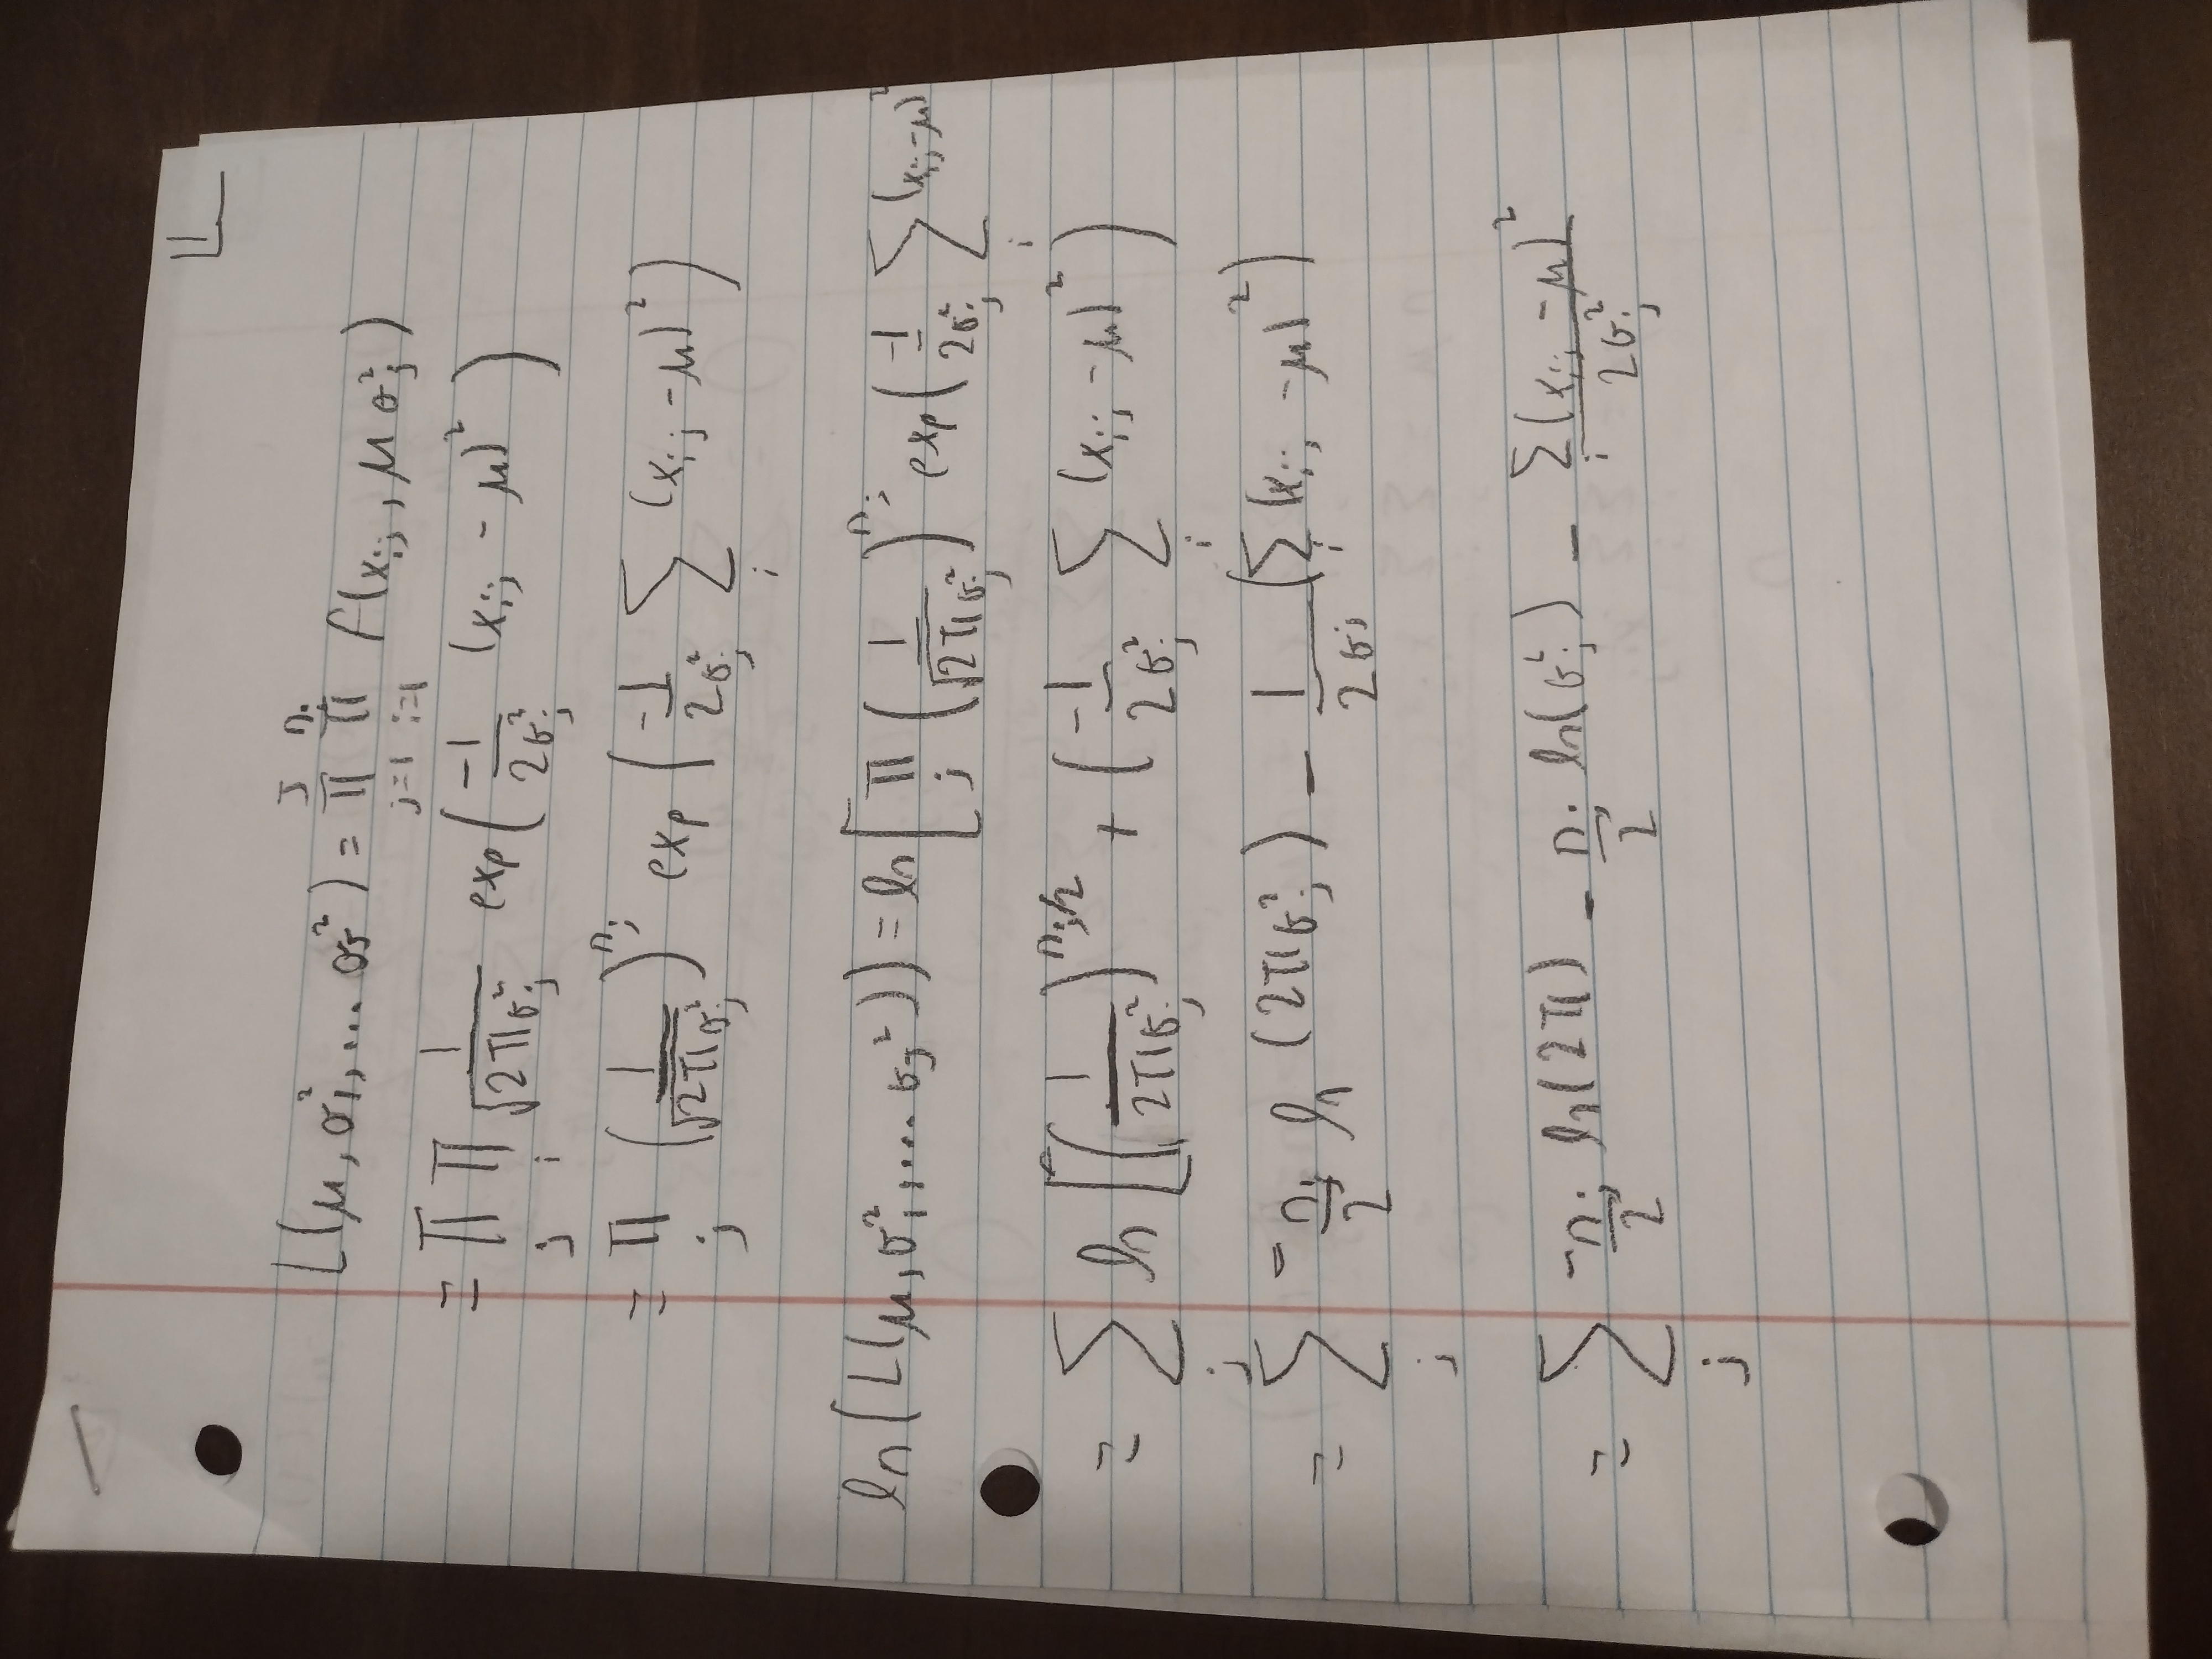 1
L(μ, σ₁², ... σ_J²) = ∏_{j=1}^{J} ∏_{i=1}^{n_j} f(x_{ij}, μ σ_j²)
= ∏_j ∏_i 1/√(2πσ_j²) exp(-1/(2σ_j²) (x_{ij} - μ)²)
= ∏_j (1/√(2πσ_j²))^{n_j} exp(-1/(2σ_j²) ∑_i (x_{ij} - μ)²)
ln(L(μ, σ₁², ... σ_J²)) = ln[∏_j (1/√(2πσ_j²))^{n_j} exp(-1/(2σ_j²) ∑_i (x_{ij} - μ)²
= ∑_j ln[(1/(2πσ_j²))^{n_j/2} + (-1/(2σ_j²) ∑_i (x_{ij} - μ)²)
= ∑_j -n_j/2 ln(2πσ_j²) - 1/(2σ_j) (∑_i (x_{ij} - μ)²)
= ∑_j -n_j/2 ln(2π) - n_j/2 ln(σ_j²) - ∑_i (x_{ij} - μ)²/(2σ_j²)